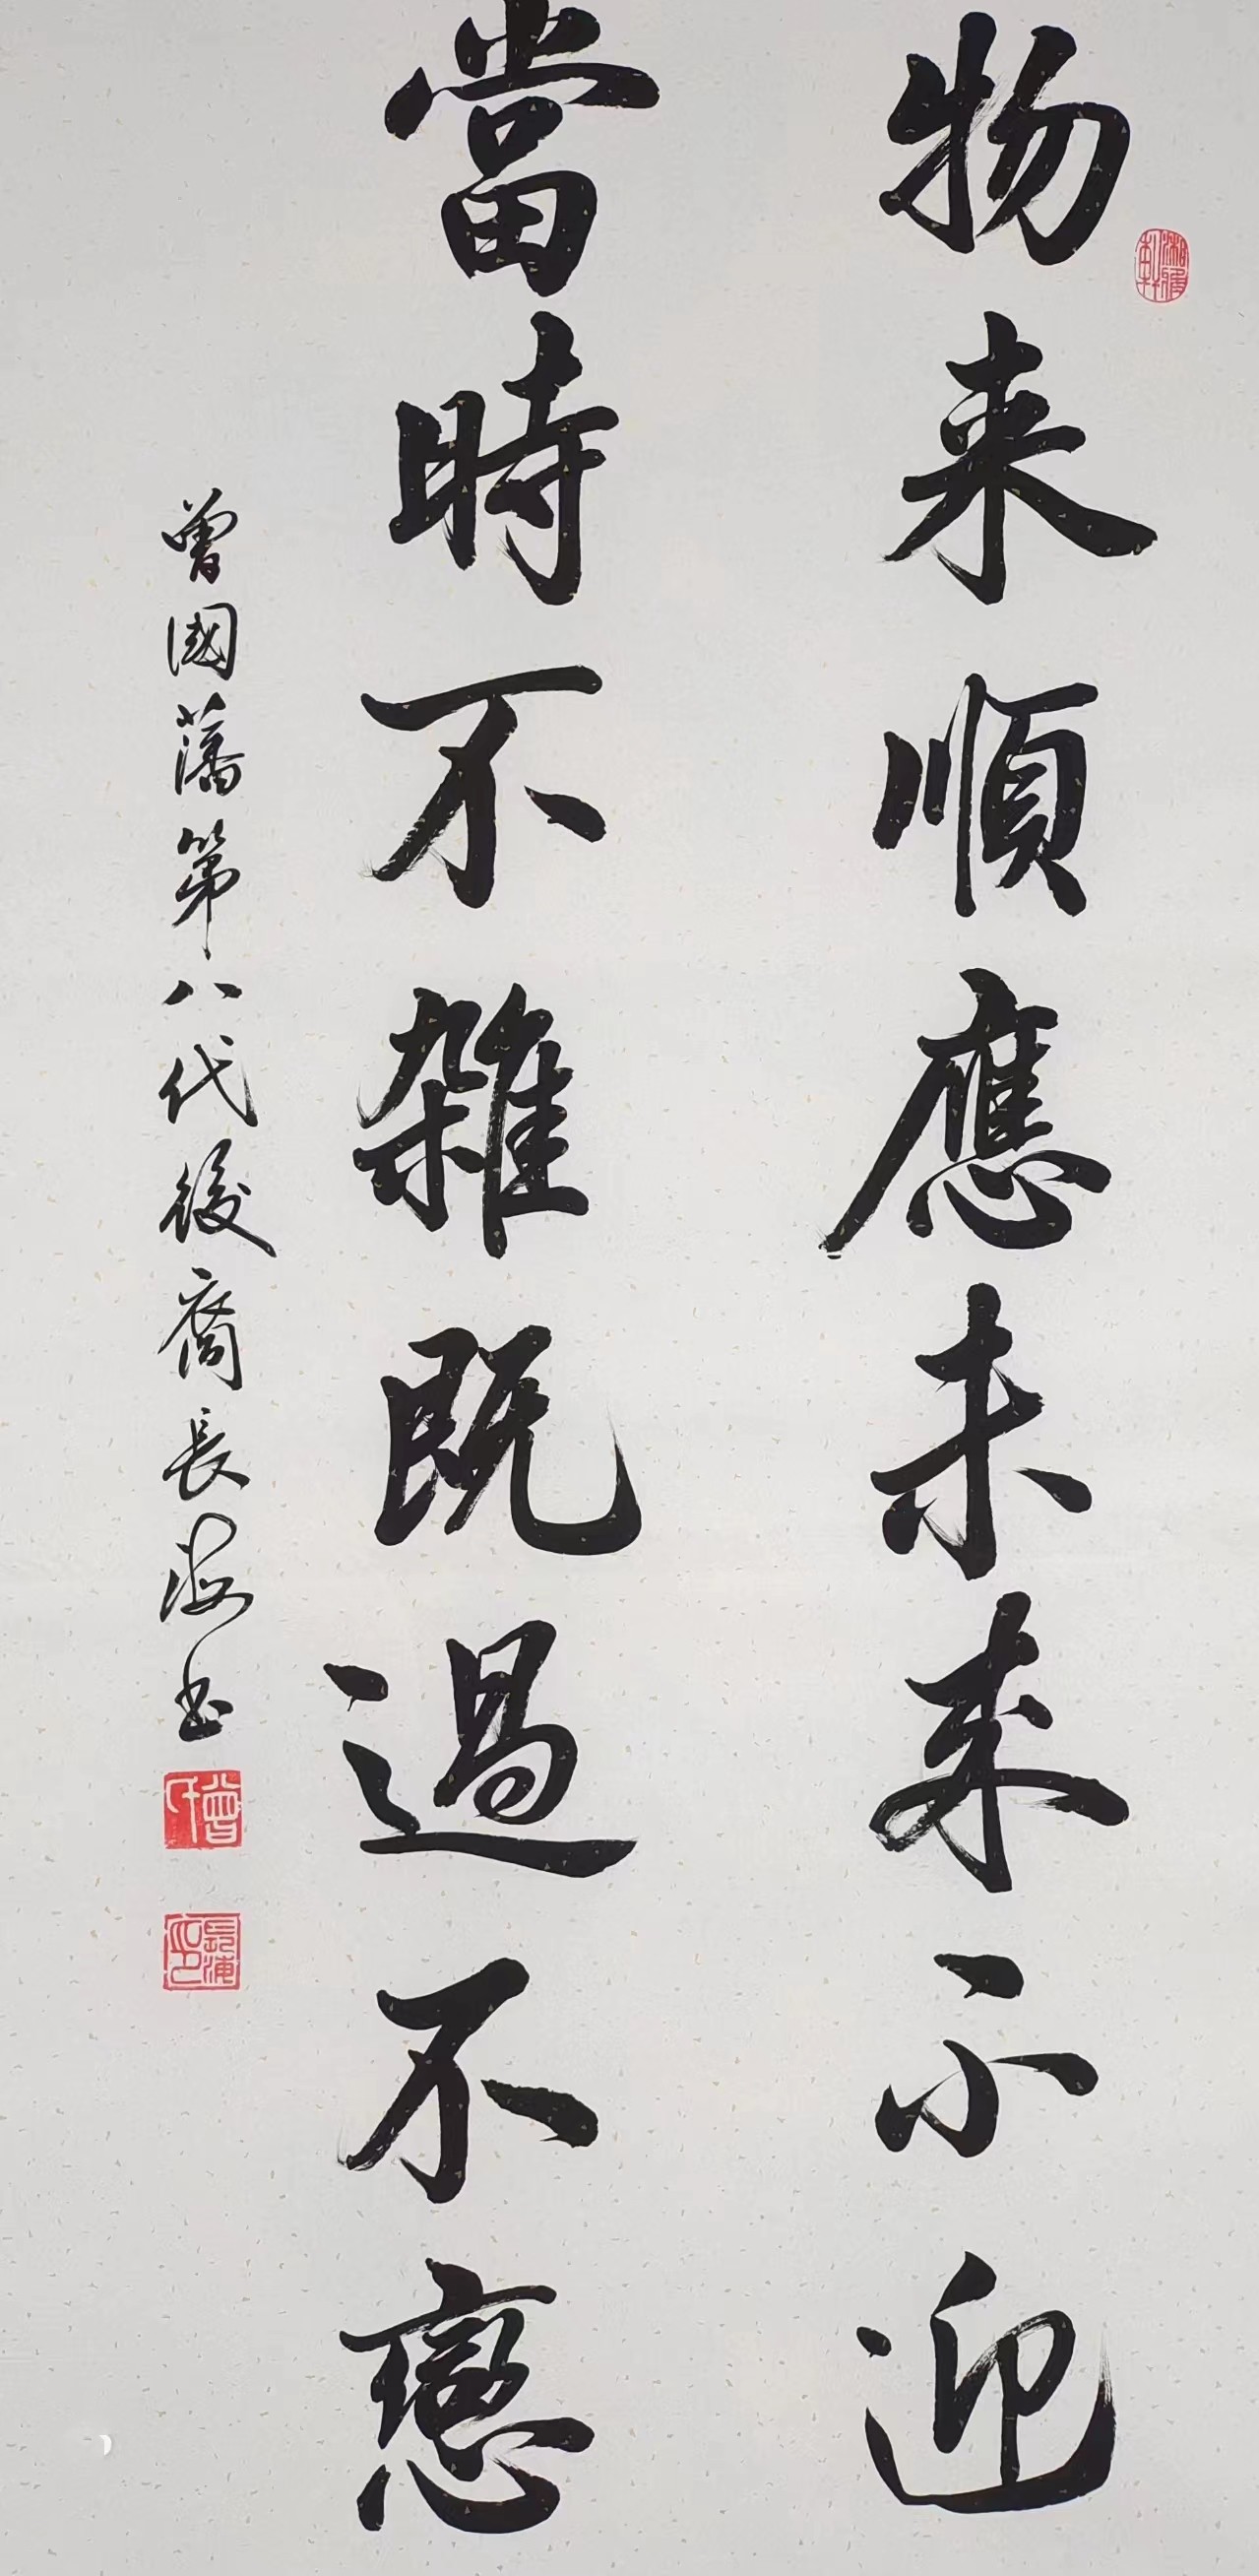 物来順應未来不迎
當時不雜既過不戀
曾國藩第八代後裔長海書
曾氏
長海印